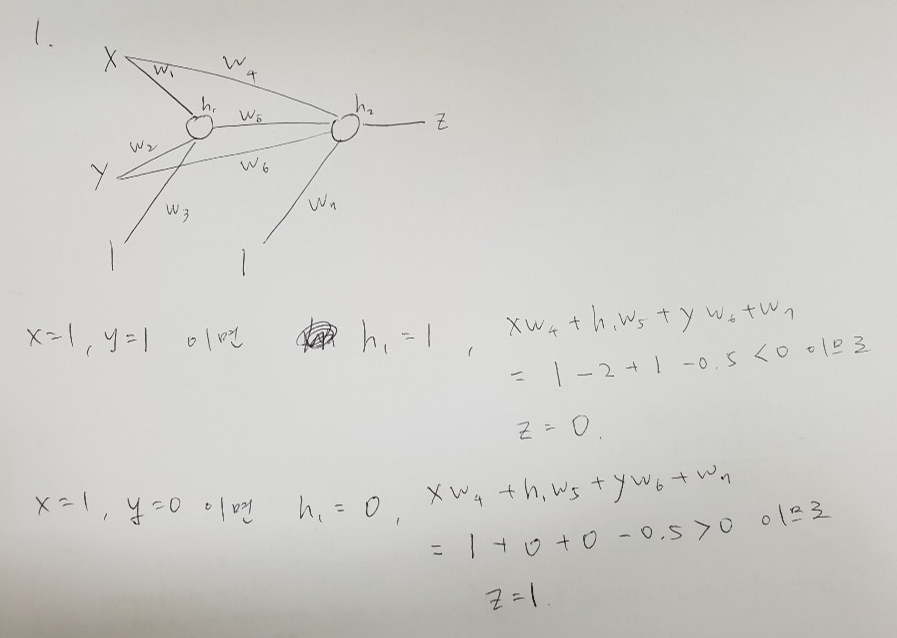 1.
X W₁ W₄
h₁ W₅ h₂ Z
W₂
Y W₆
W₃ W₇
1 1
x=1, y=1 이면 h₁=1, xw₄+h₁w₅+yw₆+w₇
= 1-2+1-0.5<0 이므로
z=0.
x=1, y=0 이면 h₁=0, xw₄+h₁w₅+yw₆+w₇
= 1+0+0-0.5>0 이므로
z=1.